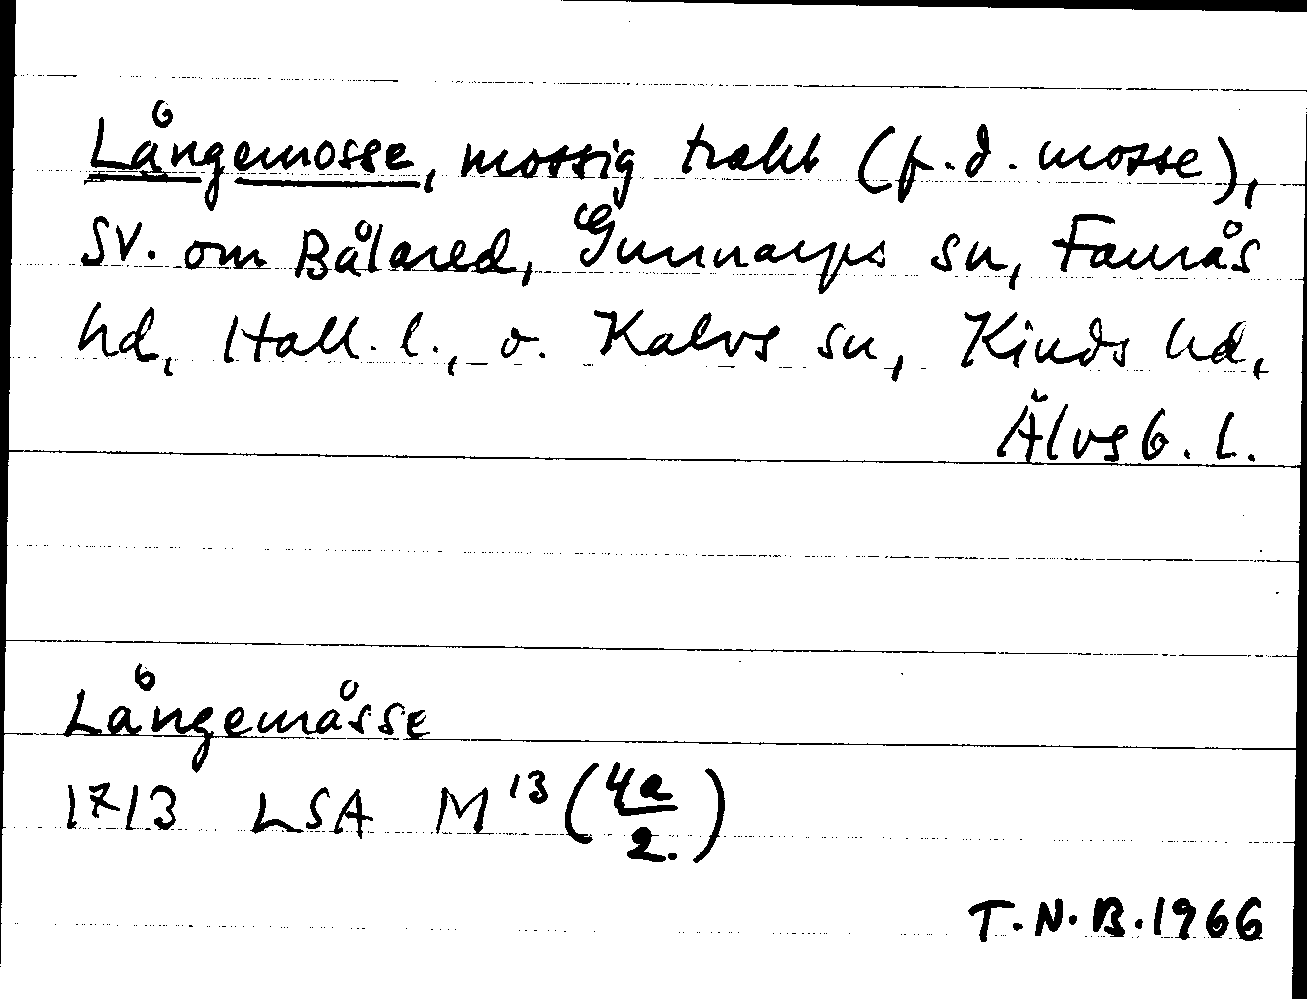 Långemosse, mossig trakt (f.d. mosse),
SV. om Bålared, Gunnarps sn, Faurås
hd, Hall. l., o. Kalvs sn, Kinds hd,
Älvsb. l.
Långemåsse
1713 LSA M¹³ (4a/2.)
T.N.B. 1966